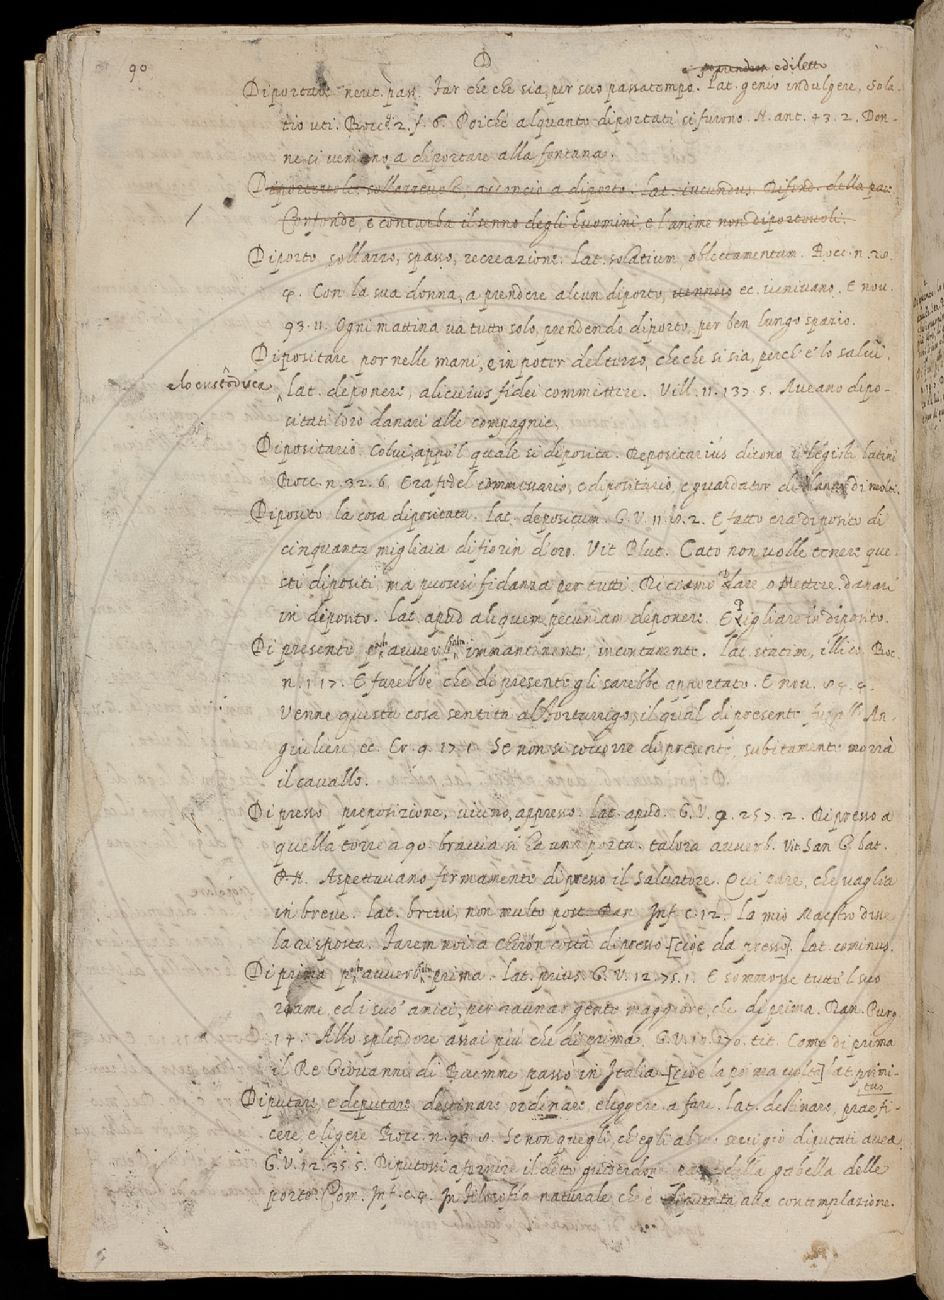 90
D
e prendersi ediletto
Diportare neut. pass. Far che che sia, per suo passatempo. Lat. genio indulgere, sola-
tio uti. Bocc. 2. f. 6. Poichè alquanto diportati si furono. N. ant. 43. 2. Don-
ne, ci veniano a diportare alla fontana.
Diportevole. sollazzevole, acconcio a diporto. Lat. iucundus. Rifond. della par.
Confonde, e conturba il senno degli huomini, e l'anime non diportevoli.
Diporto sollazzo, spasso, recreazione. Lat. solatium, oblectamentum. Bocc. n. 20.
Con la sua donna, a prendere alcun diporto, ec. venivano. E nov.
93. 11. Ogni mattina va tutto solo, prendendo diporto, per ben lungo spazio.
Dipositare, por nelle mani, e in poter del terzo, che che si sia, perch' e' lo salvi,
e lo custodisca
Lat. deponere, alicuius fidei committere. Vill. 11. 137. 5. Aveano dipo-
sitati loro danari alle compagnie.
Dipositario. Colui, appo 'l quale si diposita. Repositarius dicono i legisti latini
Bocc. n. 32. 6. Era fedel commessario, e dipositario, e guardator di danari di molti.
Diposito la cosa dipositata. Lat. depositum. G. V. 11. 2. E fatto era diposito di
cinquanta migliaia di fiorin d'oro. Vit. Plut. Cato non volle tenere que-
sti dipositi, ma puosesi fidanza per tutti. Diciamo dare, o Mettere danari
in diposito. Lat. apud aliquem pecuniam deponere. E Pigliare in diposito.
Di presente avverb. immantenente, incontanente. Lat. statim, illico. Boc.
n. 1. 17. E farebbe che di presente gli sarebbe apportato. E nov.
Venne questa cosa sentita al Fortarrigo, il qual di presente fu all' An-
giulieri, ec. Cr. 9. 17. 1. Se non si soccorre di presente, subitamente morrà
il cavallo.
Di presso preposizione, vicino, appresso. Lat. apud. G. V. 9. 257. 2. Di presso a
quella torre a 90. braccia si ha una porta. talora avverb. Vit. San G. bat.
P. N. Aspettavano fermamente di presso il Salvatore. Qui pare, che vaglia
in breve. Lat. brevi, non multo post. Dan. Inf. c. 12. La mio Maestro disse
la risposta. Farem noi a Chiron costà di presso [cioè da presso]. Lat. cominus.
Di prima avverb. prima. Lat. prius. G. V. 12. 75. 1. E sommosse tutto 'l suo
reame, ed i suo' amici, per raunar gente maggiore, che di prima. Dan. Purg.
14. Allo splendore assai più che di prima. G. V. 10. 170. tit. Come di prima
il Re Giovanni di Buemme passò in Italia [cioè la prima volta] lat. primi-
tus
Diputare, e deputare destinare, ordinare, eleggere a fare. Lat. destinare, praefi-
cere, eligere. Bocc. n. 98. Se non quegli, ch' egli al servigio diputati avea
G. V. 12. 35. 5. Diputossi a fornire il detto guiderdone della gabella delle
porte. Com. Inf. c. 4. In filosofia naturale che è diputata alla contemplazione.